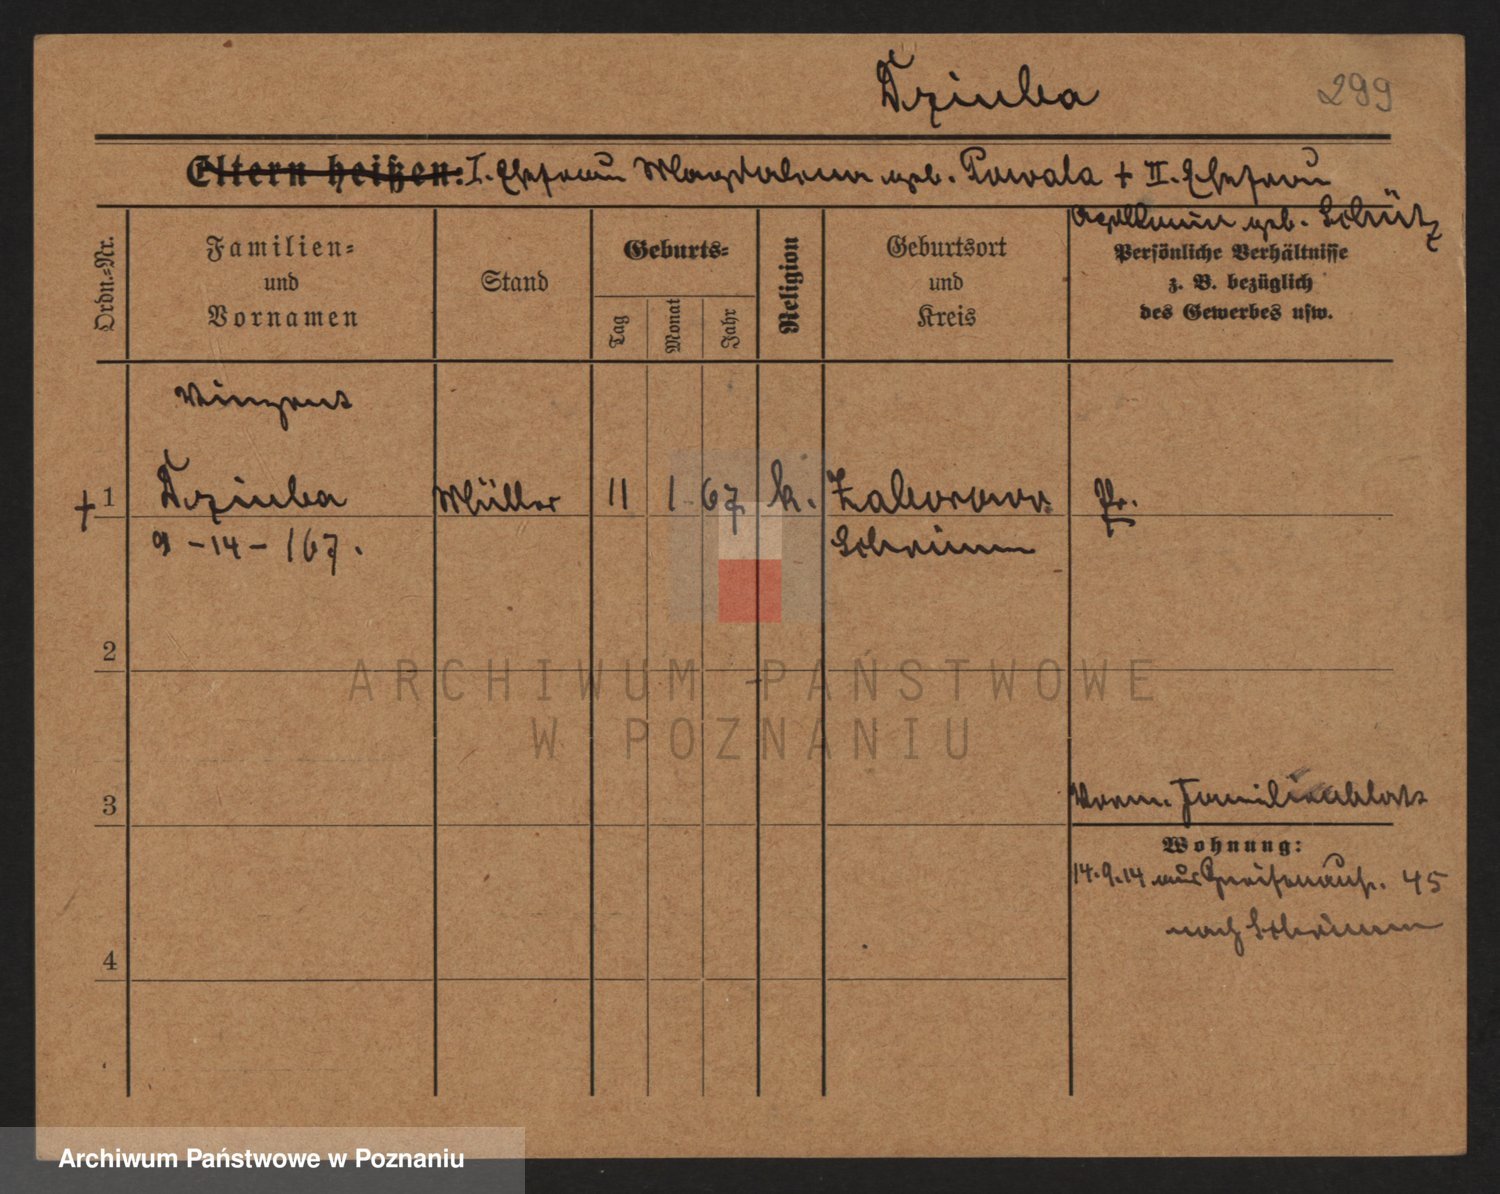 Dziuba
299
Eltern heißen: I. Ehefrau Magdalena geb. Powala + II. Ehefrau
geb. Schütz
Ordn.=Nr.
Familien=
und
Vornamen
Stand
Geburts=
Tag
Monat
Jahr
Religion
Geburtsort
und
Kreis
Persönliche Verhältnisse
z. B. bezüglich
des Gewerbes usw.
Vinzent
+ 1 Dziuba Müller 11 1 67 k. Zaborowo Pr.
9 - 14 - 167. Schrimm
2
ARCHIWUM PAŃSTWOWE
W POZNANIU
3 Verm. Familienblatt
Wohnung:
14.9.14 aus Gneisenaustr. 45
nach Schrimm
4
Archiwum Państwowe w Poznaniu